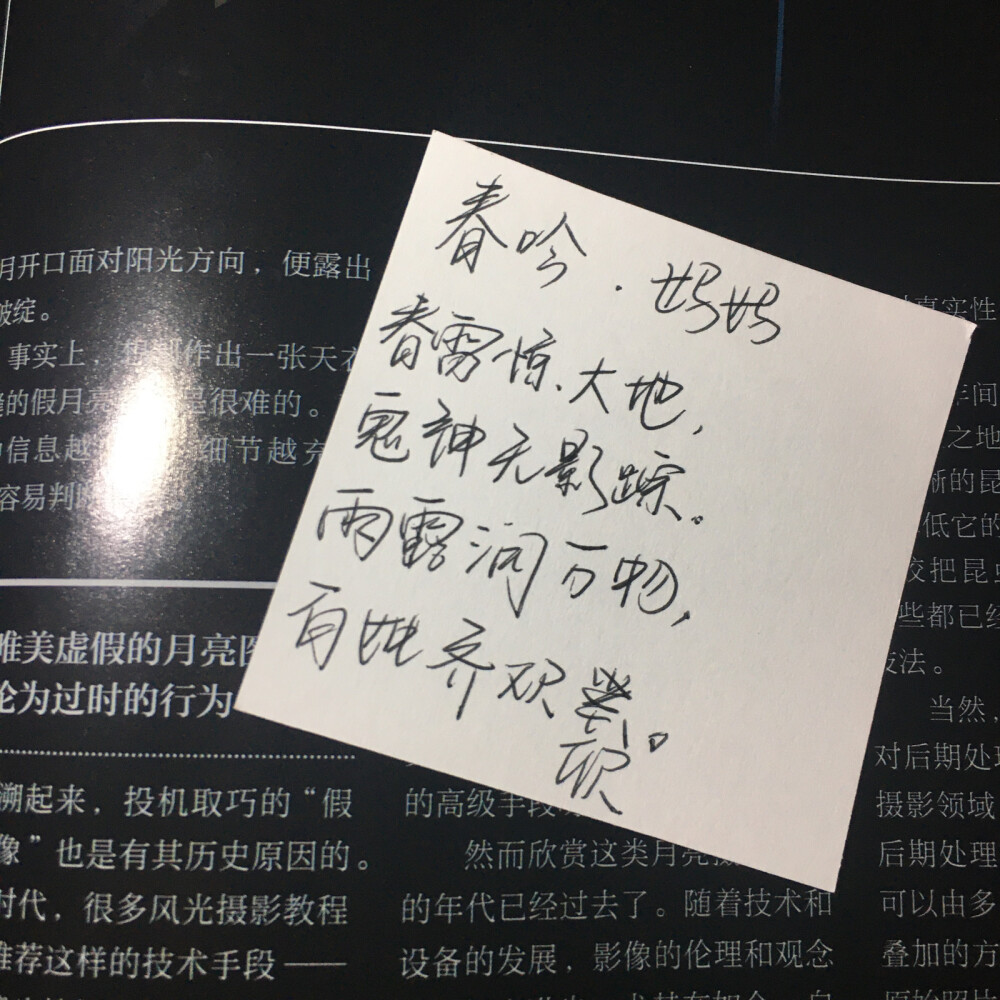 春吟.妈妈
春雷惊大地,
鬼神无影踪。
雨露润万物,
百姓齐欢。
月开口面对阳光方向，便露出
破绽。
事实上，作出一张天衣
的假月亮是很难的。
信息越细节越充
容易判
唯美虚假的月亮图
沦为过时的行为
溯起来，投机取巧的“假
像”也是有其历史原因的。
时代，很多风光摄影教程
推荐这样的技术手段——
的高级手段
然而欣赏这类月亮摄
的年代已经过去了。随着技术和
设备的发展，影像的伦理和观念
真实性
年间
之地
晰的昆
低它的
把昆
些都已经
技法。
当然，
对后期处理
摄影领域
后期处理
可以由多
叠加的方